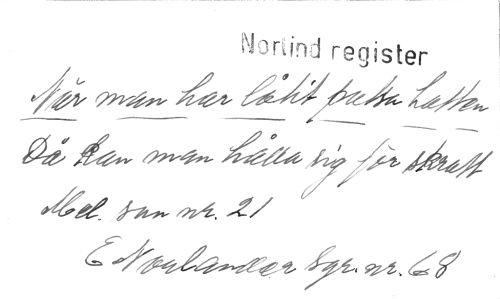 Norlind register
När man har låtit putsa hatten
Då kan man hålla sig för skratt
Mel. sun nr. 21
E Norlander Sgr. nr. 68